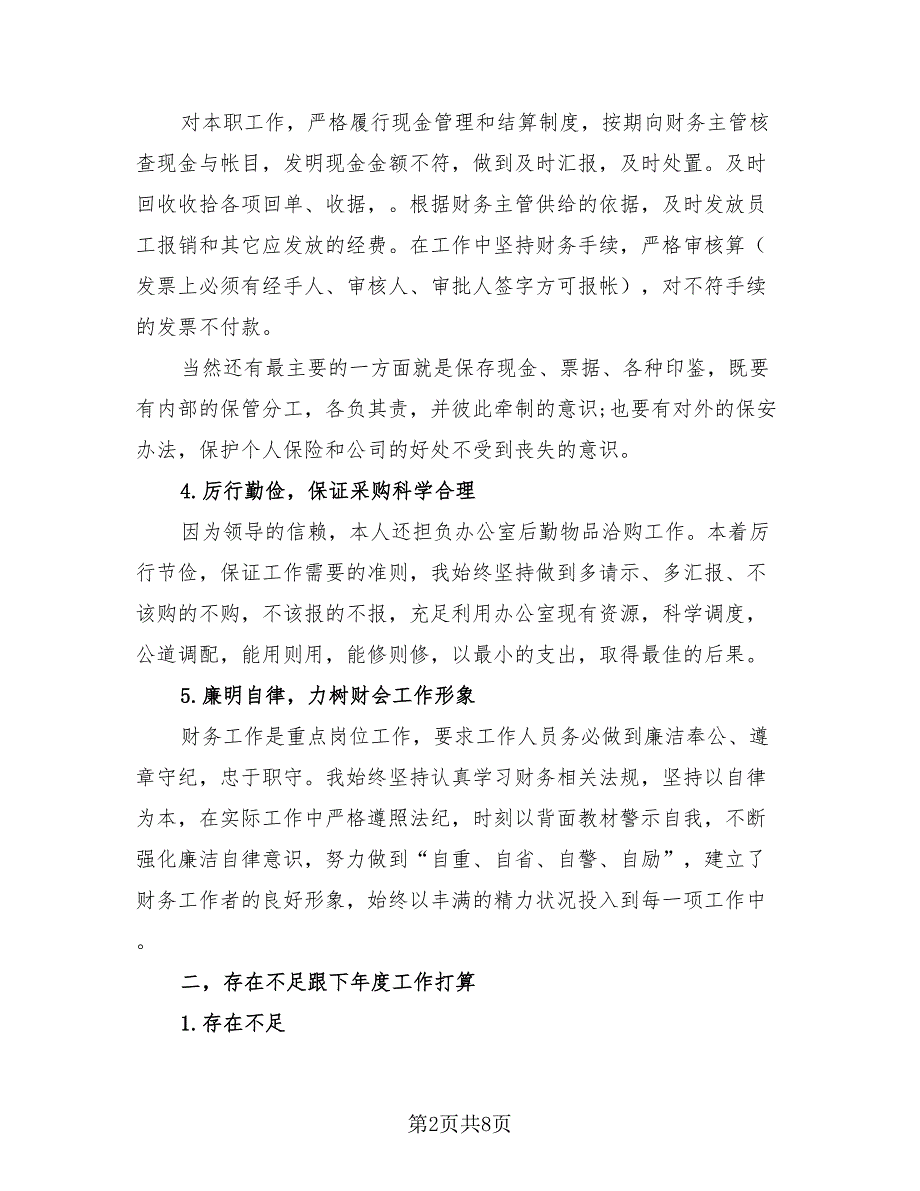 对本职工作，严格履行现金管理和结算制度，按期向财务主管核
查现金与帐目，发明现金金额不符，做到及时汇报，及时处置。及时
回收收拾各项回单、收据，。根据财务主管供给的依据，及时发放员
工报销和其它应发放的经费。在工作中坚持财务手续，严格审核算（
发票上必须有经手人、审核人、审批人签字方可报帐），对不符手续
的发票不付款。
当然还有最主要的一方面就是保存现金、票据、各种印鉴，既要
有内部的保管分工，各负其责，并彼此牵制的意识;也要有对外的保安
办法，保护个人保险和公司的好处不受到丧失的意识。
4.厉行勤俭，保证采购科学合理
因为领导的信赖，本人还担负办公室后勤物品洽购工作。本着厉
行节俭，保证工作需要的准则，我始终坚持做到多请示、多汇报、不
该购的不购，不该报的不报，充足利用办公室现有资源，科学调度，
公道调配，能用则用，能修则修，以最小的支出，取得最佳的后果。
5.廉明自律，力树财会工作形象
财务工作是重点岗位工作，要求工作人员务必做到廉洁奉公、遵
章守纪，忠于职守。我始终坚持认真学习财务相关法规，坚持以自律
为本，在实际工作中严格遵照法纪，时刻以背面教材警示自我，不断
强化廉洁自律意识，努力做到“自重、自省、自警、自励”，建立了
财务工作者的良好形象，始终以丰满的精力状况投入到每一项工作中
。
二，存在不足跟下年度工作打算
1.存在不足
第2页共8页